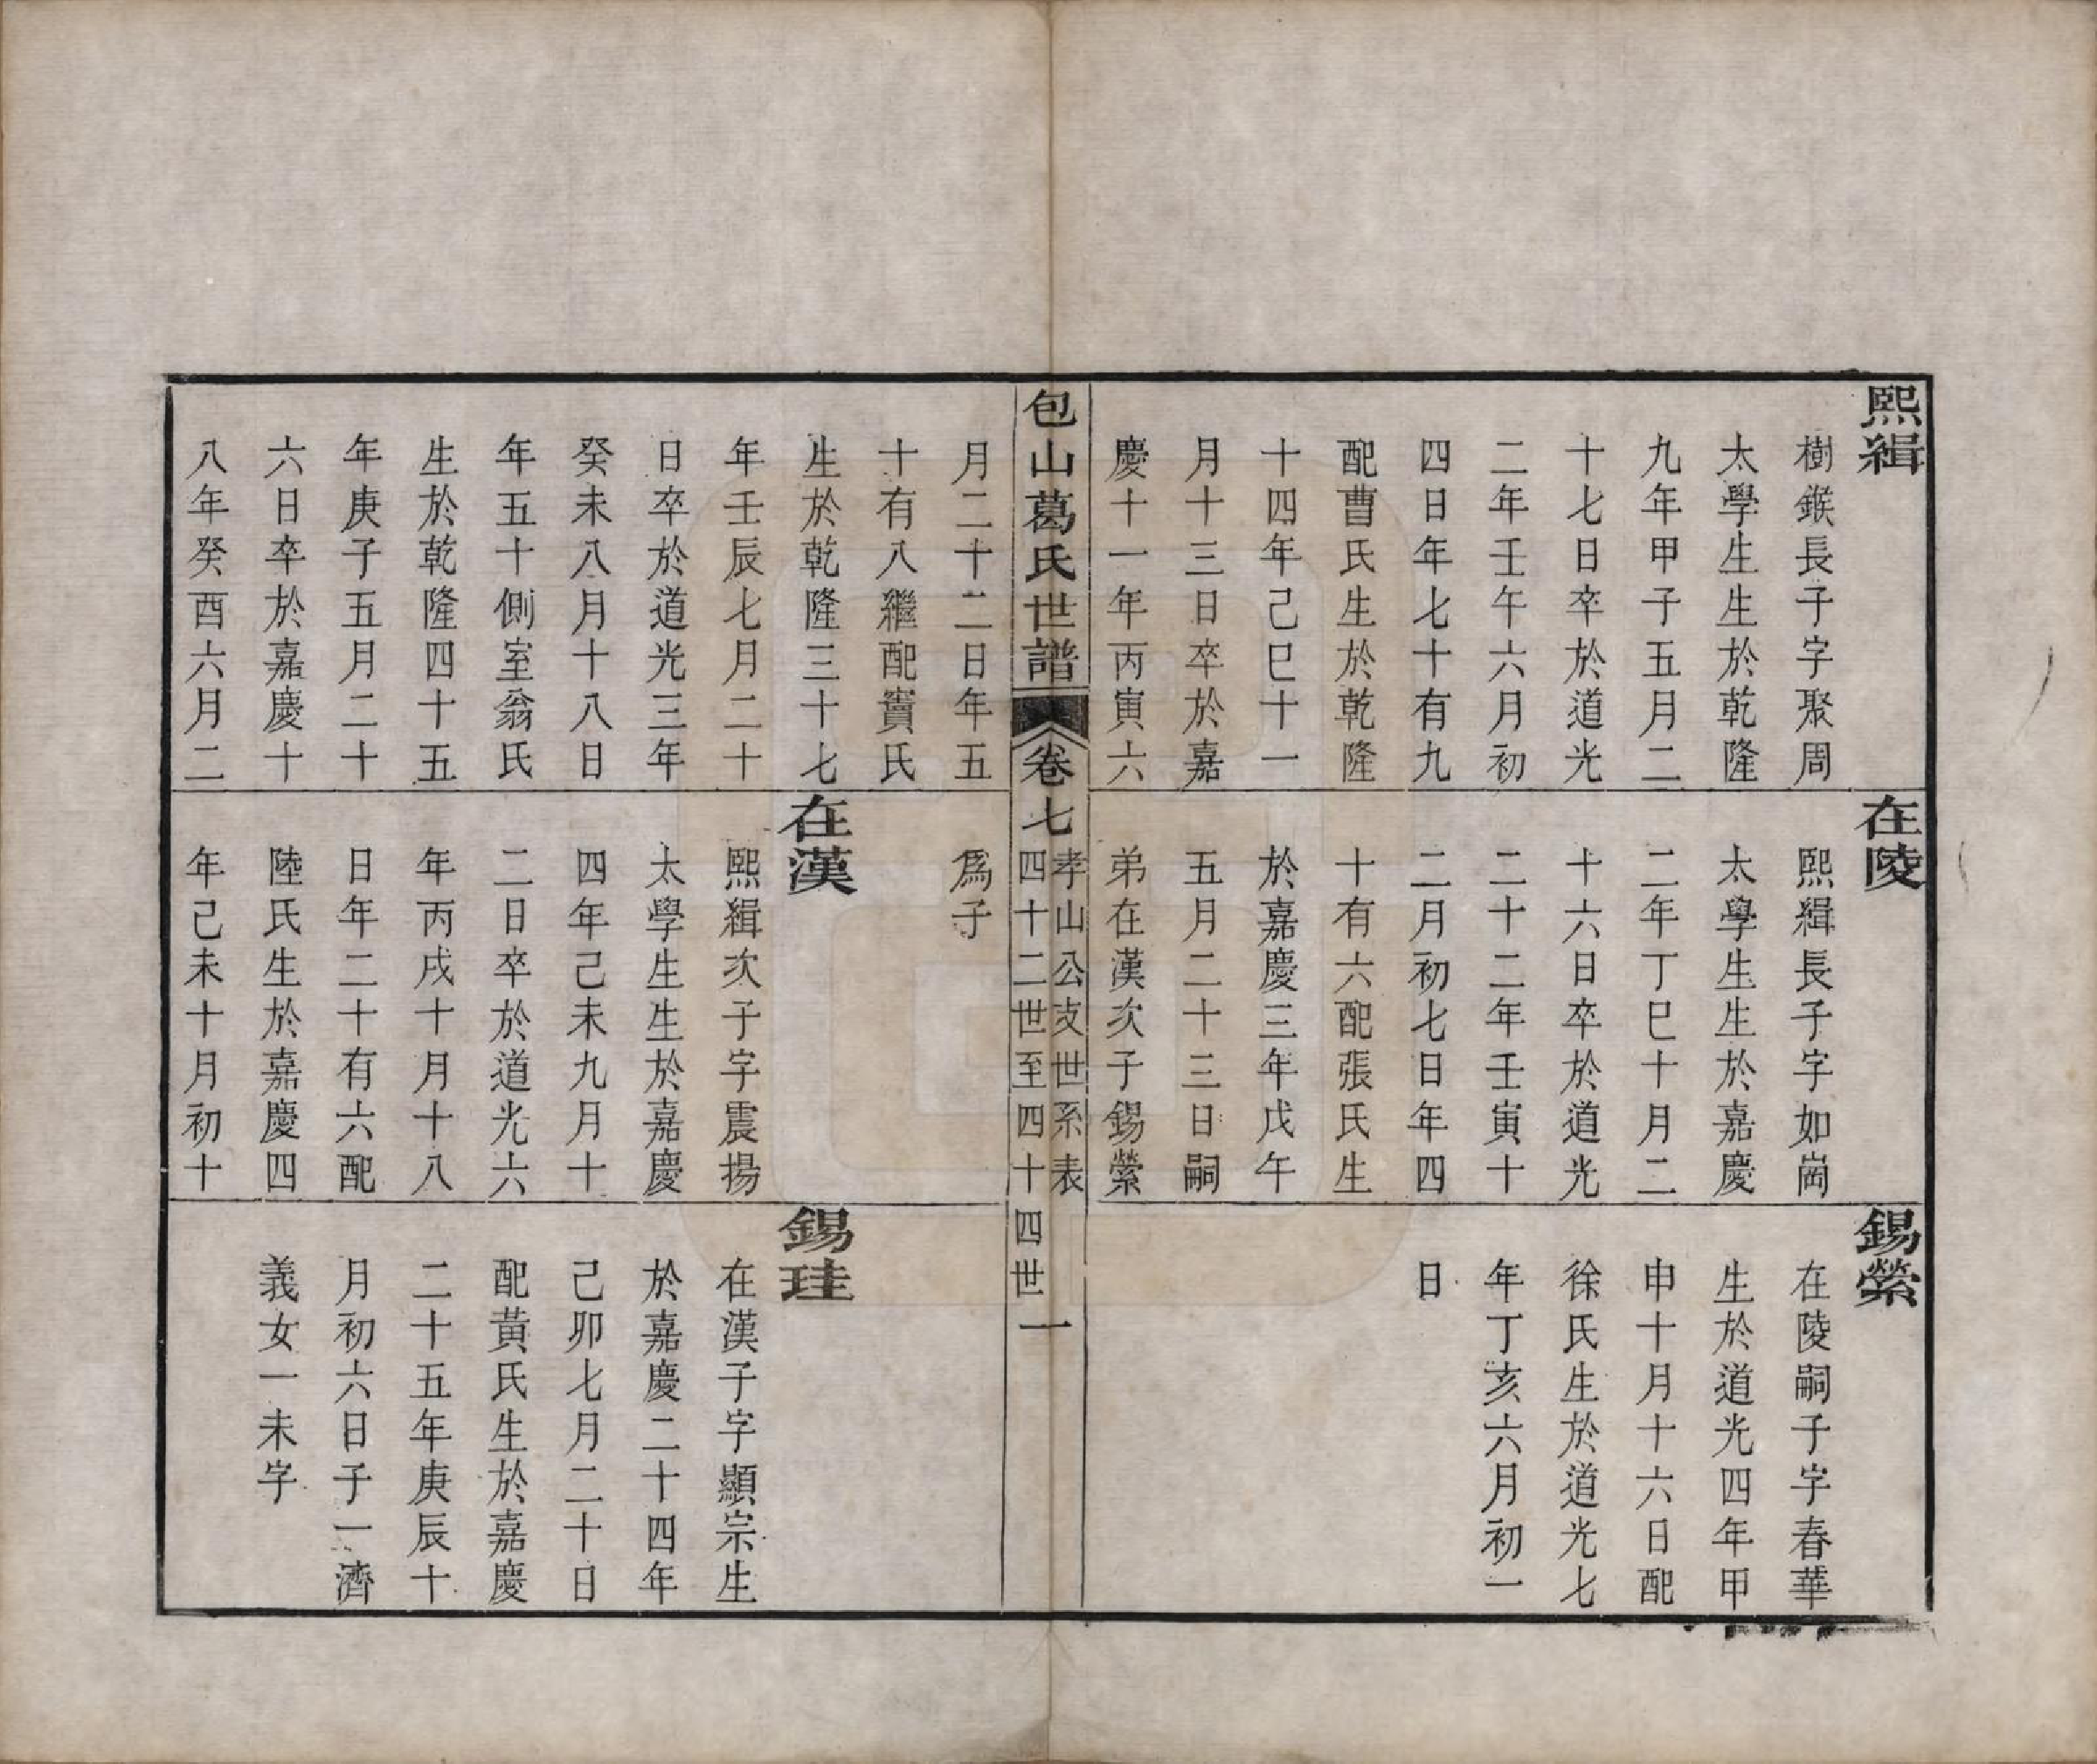 熙緝
樹鍭長子字聚周
太學生生於乾隆
九年甲子五月二
十七日卒於道光
二年壬午六月初
四日年七十有九
配曹氏生於乾隆
十四年己巳十一
月十三日卒於嘉
慶十一年丙寅六
在陵
熙緝長子字如崗
太學生生於嘉慶
二年丁巳十月二
十六日卒於道光
二十二年壬寅十
二月初七日年四
十有六配張氏生
於嘉慶三年戊午
五月二十三日嗣
弟在漢次子錫縈
錫縈
在陵嗣子字春華
生於道光四年甲
申十月十六日配
徐氏生於道光七
年丁亥六月初一
日
包山葛氏世譜
卷七
孝山公支世系表
四十二世至四十四世
一
月二十二日年五
十有八繼配竇氏
生於乾隆三十七
年壬辰七月二十
日卒於道光三年
癸未八月十八日
年五十側室翁氏
生於乾隆四十五
年庚子五月二十
六日卒於嘉慶十
八年癸酉六月二
爲子
在漢
熙緝次子字震揚
太學生生於嘉慶
四年己未九月十
二日卒於道光六
年丙戌十月十八
日年二十有六配
陸氏生於嘉慶四
年己未十月初十
錫珪
在漢子字顯宗生
於嘉慶二十四年
己卯七月二十日
配黃氏生於嘉慶
二十五年庚辰十
月初六日子一濟
義女一未字